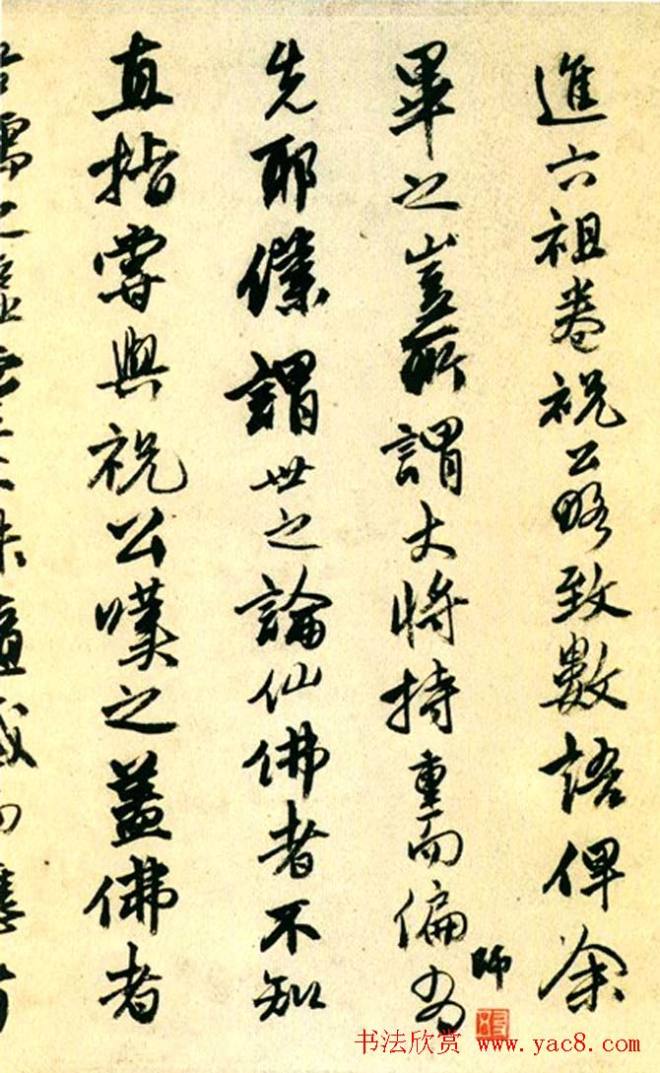 進六祖卷祝公略致數語俾余
畢之豈所謂大將持重而偏師為
先耶僕謂世之論仙佛者不知
直指嘗與祝公嘆之蓋佛者
书法欣赏 www.yac8.com